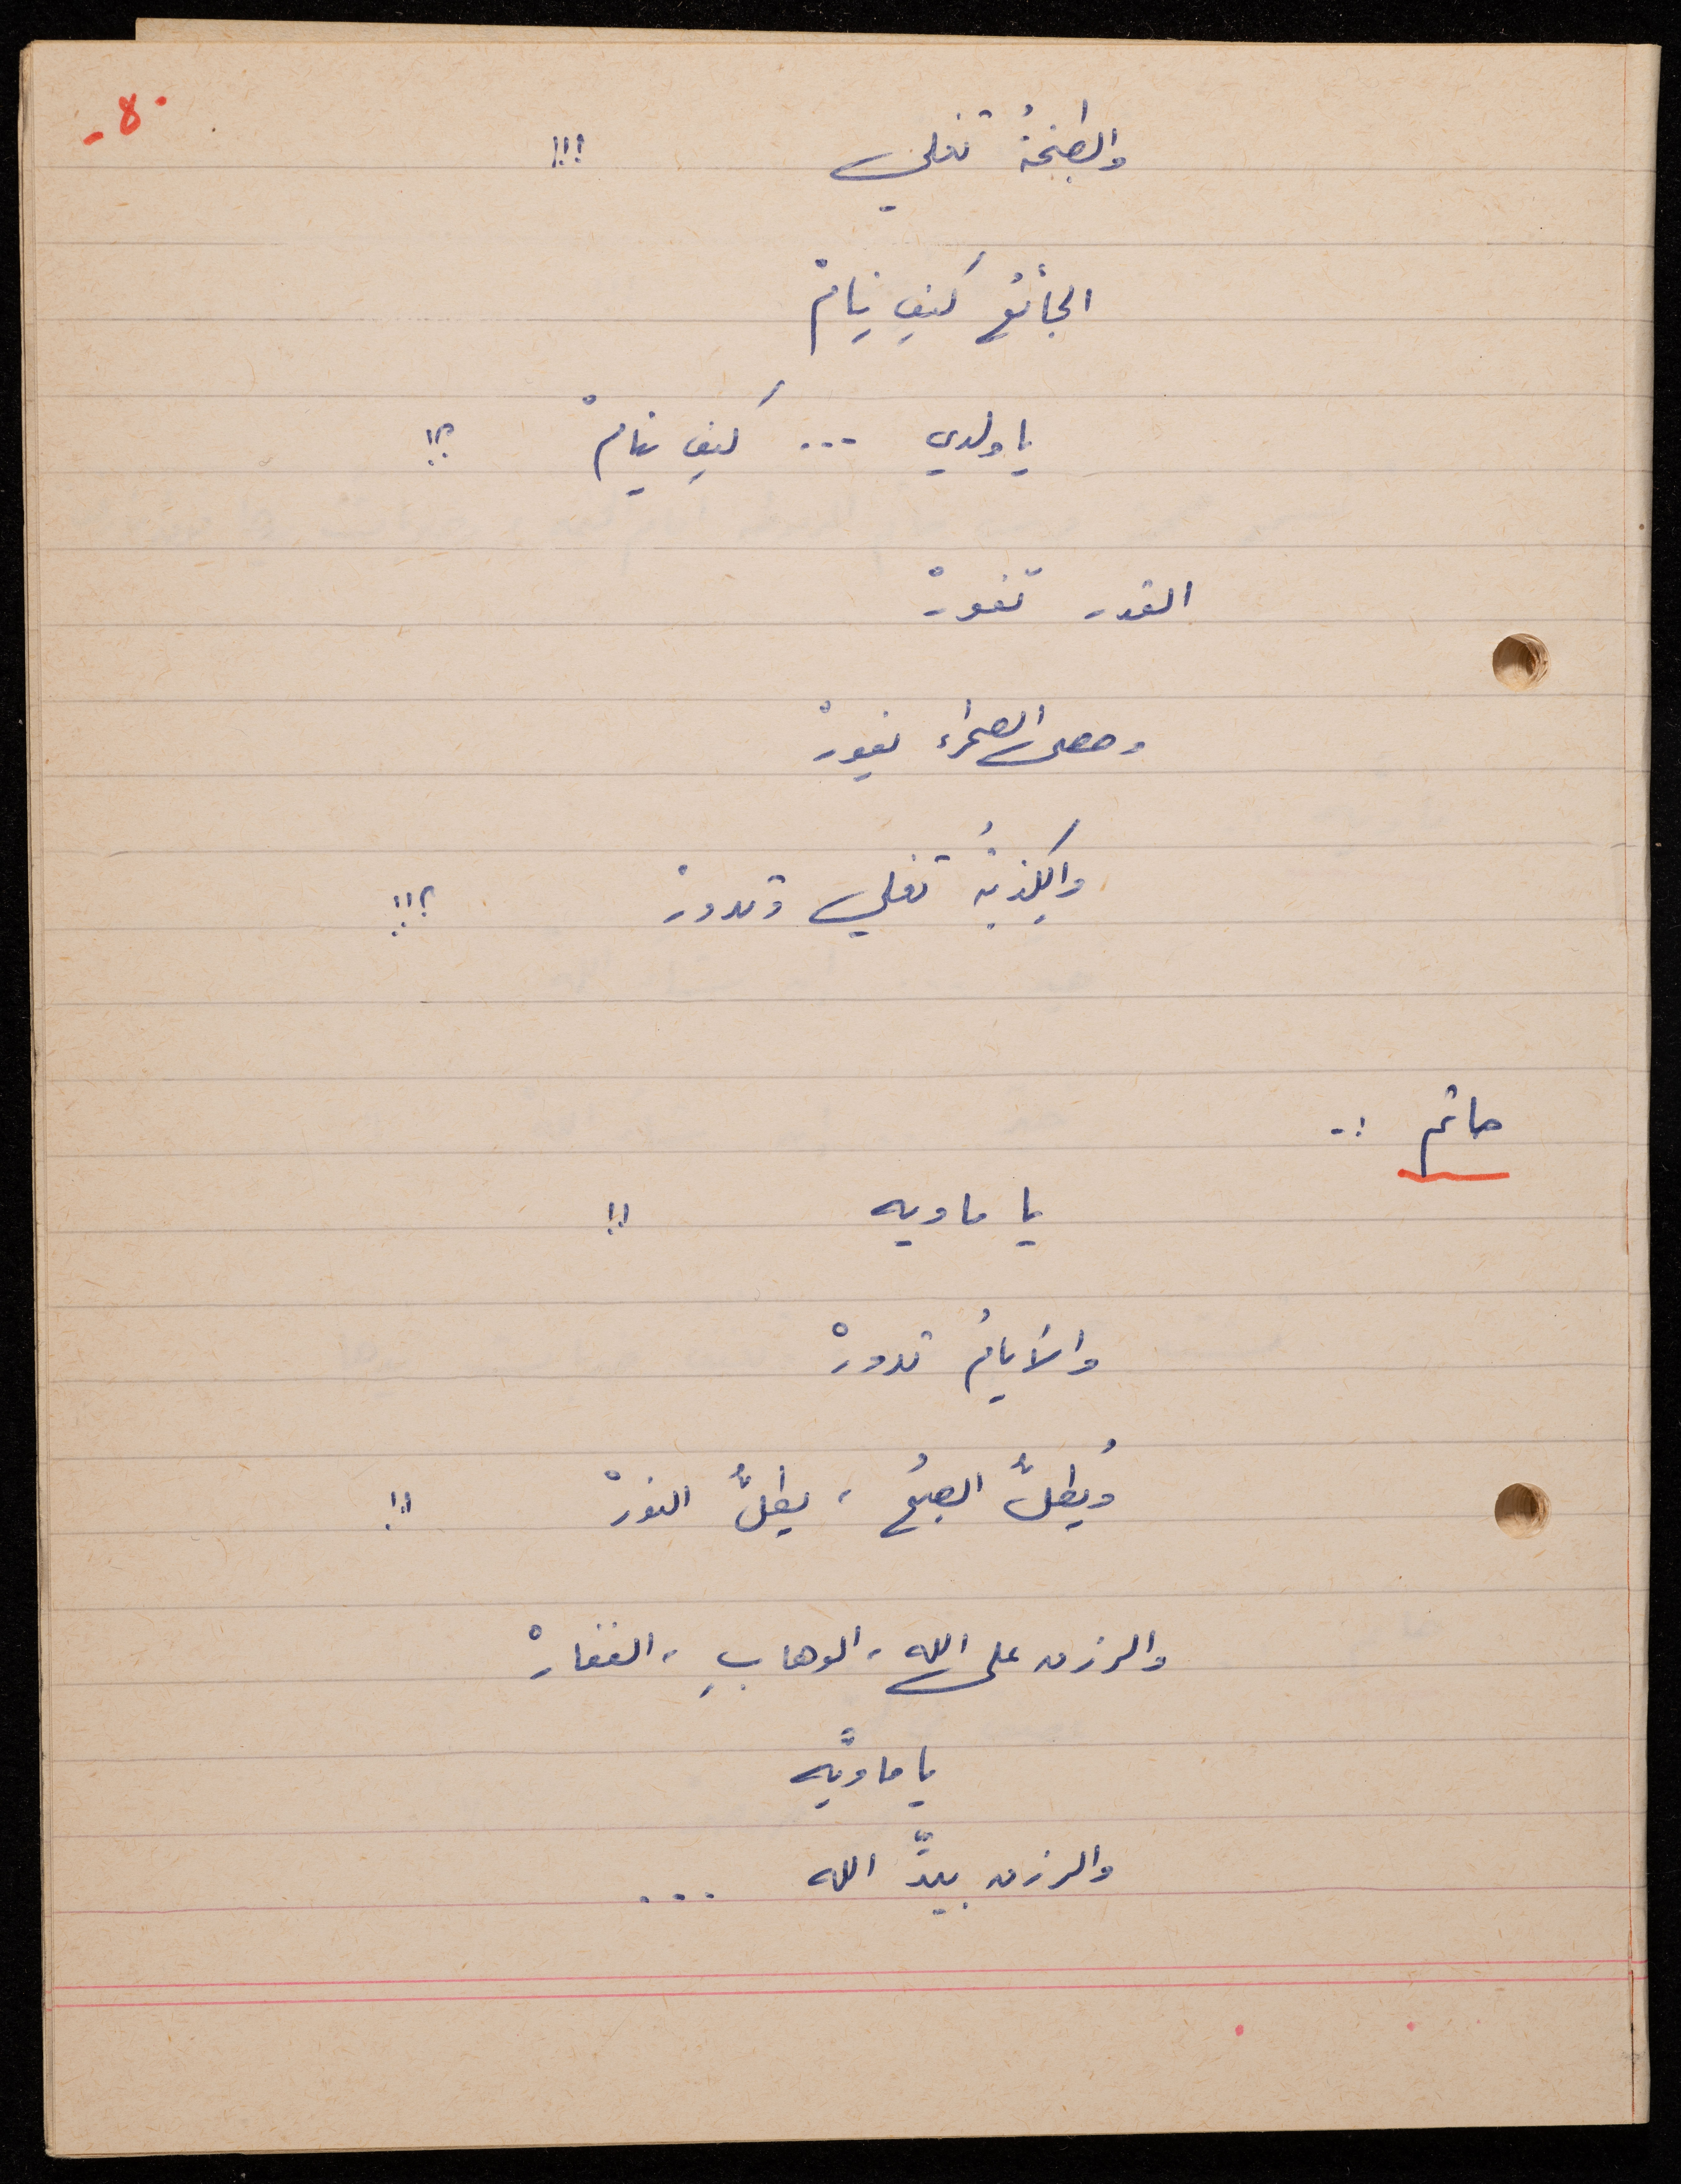 -٨٠
والطبخةُ تغلي !!!
الجائعُ كيفَ ينامْ
يا ولدي ... كيفَ ينامْ ؟!
القدر تفورْ
وحصى الصحراء يغورْ
والكِذبةُ تغلي وتدورْ ؟!!
حاتم :-
يا ماويه !!
والأيامُ تدورْ
ويُطلُّ الصبحُ ، يطلُّ النورْ !!
والرزق على الله ، الوهابِ ، الغفارْ
يا ماويَّه
والرزق بيدِّ الله ...